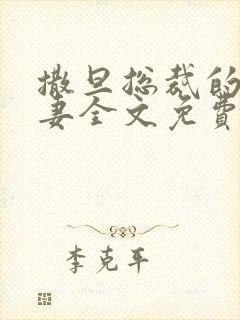 撒旦总裁的
妻全文免費
李克平